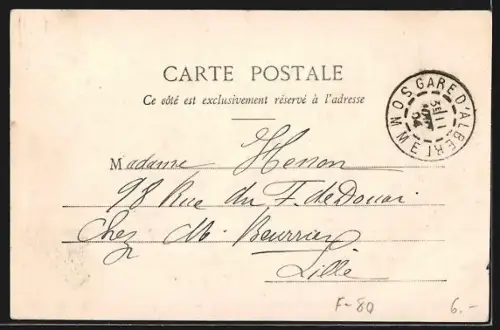 CARTE POSTALE
Ce côté est exclusivement réservé à l'adresse
GARE D'ALBERT
SOMME
Madame Henon
98 Rue du F. de Douai
Chez M. Beurrier
Lille
F-80
6.-